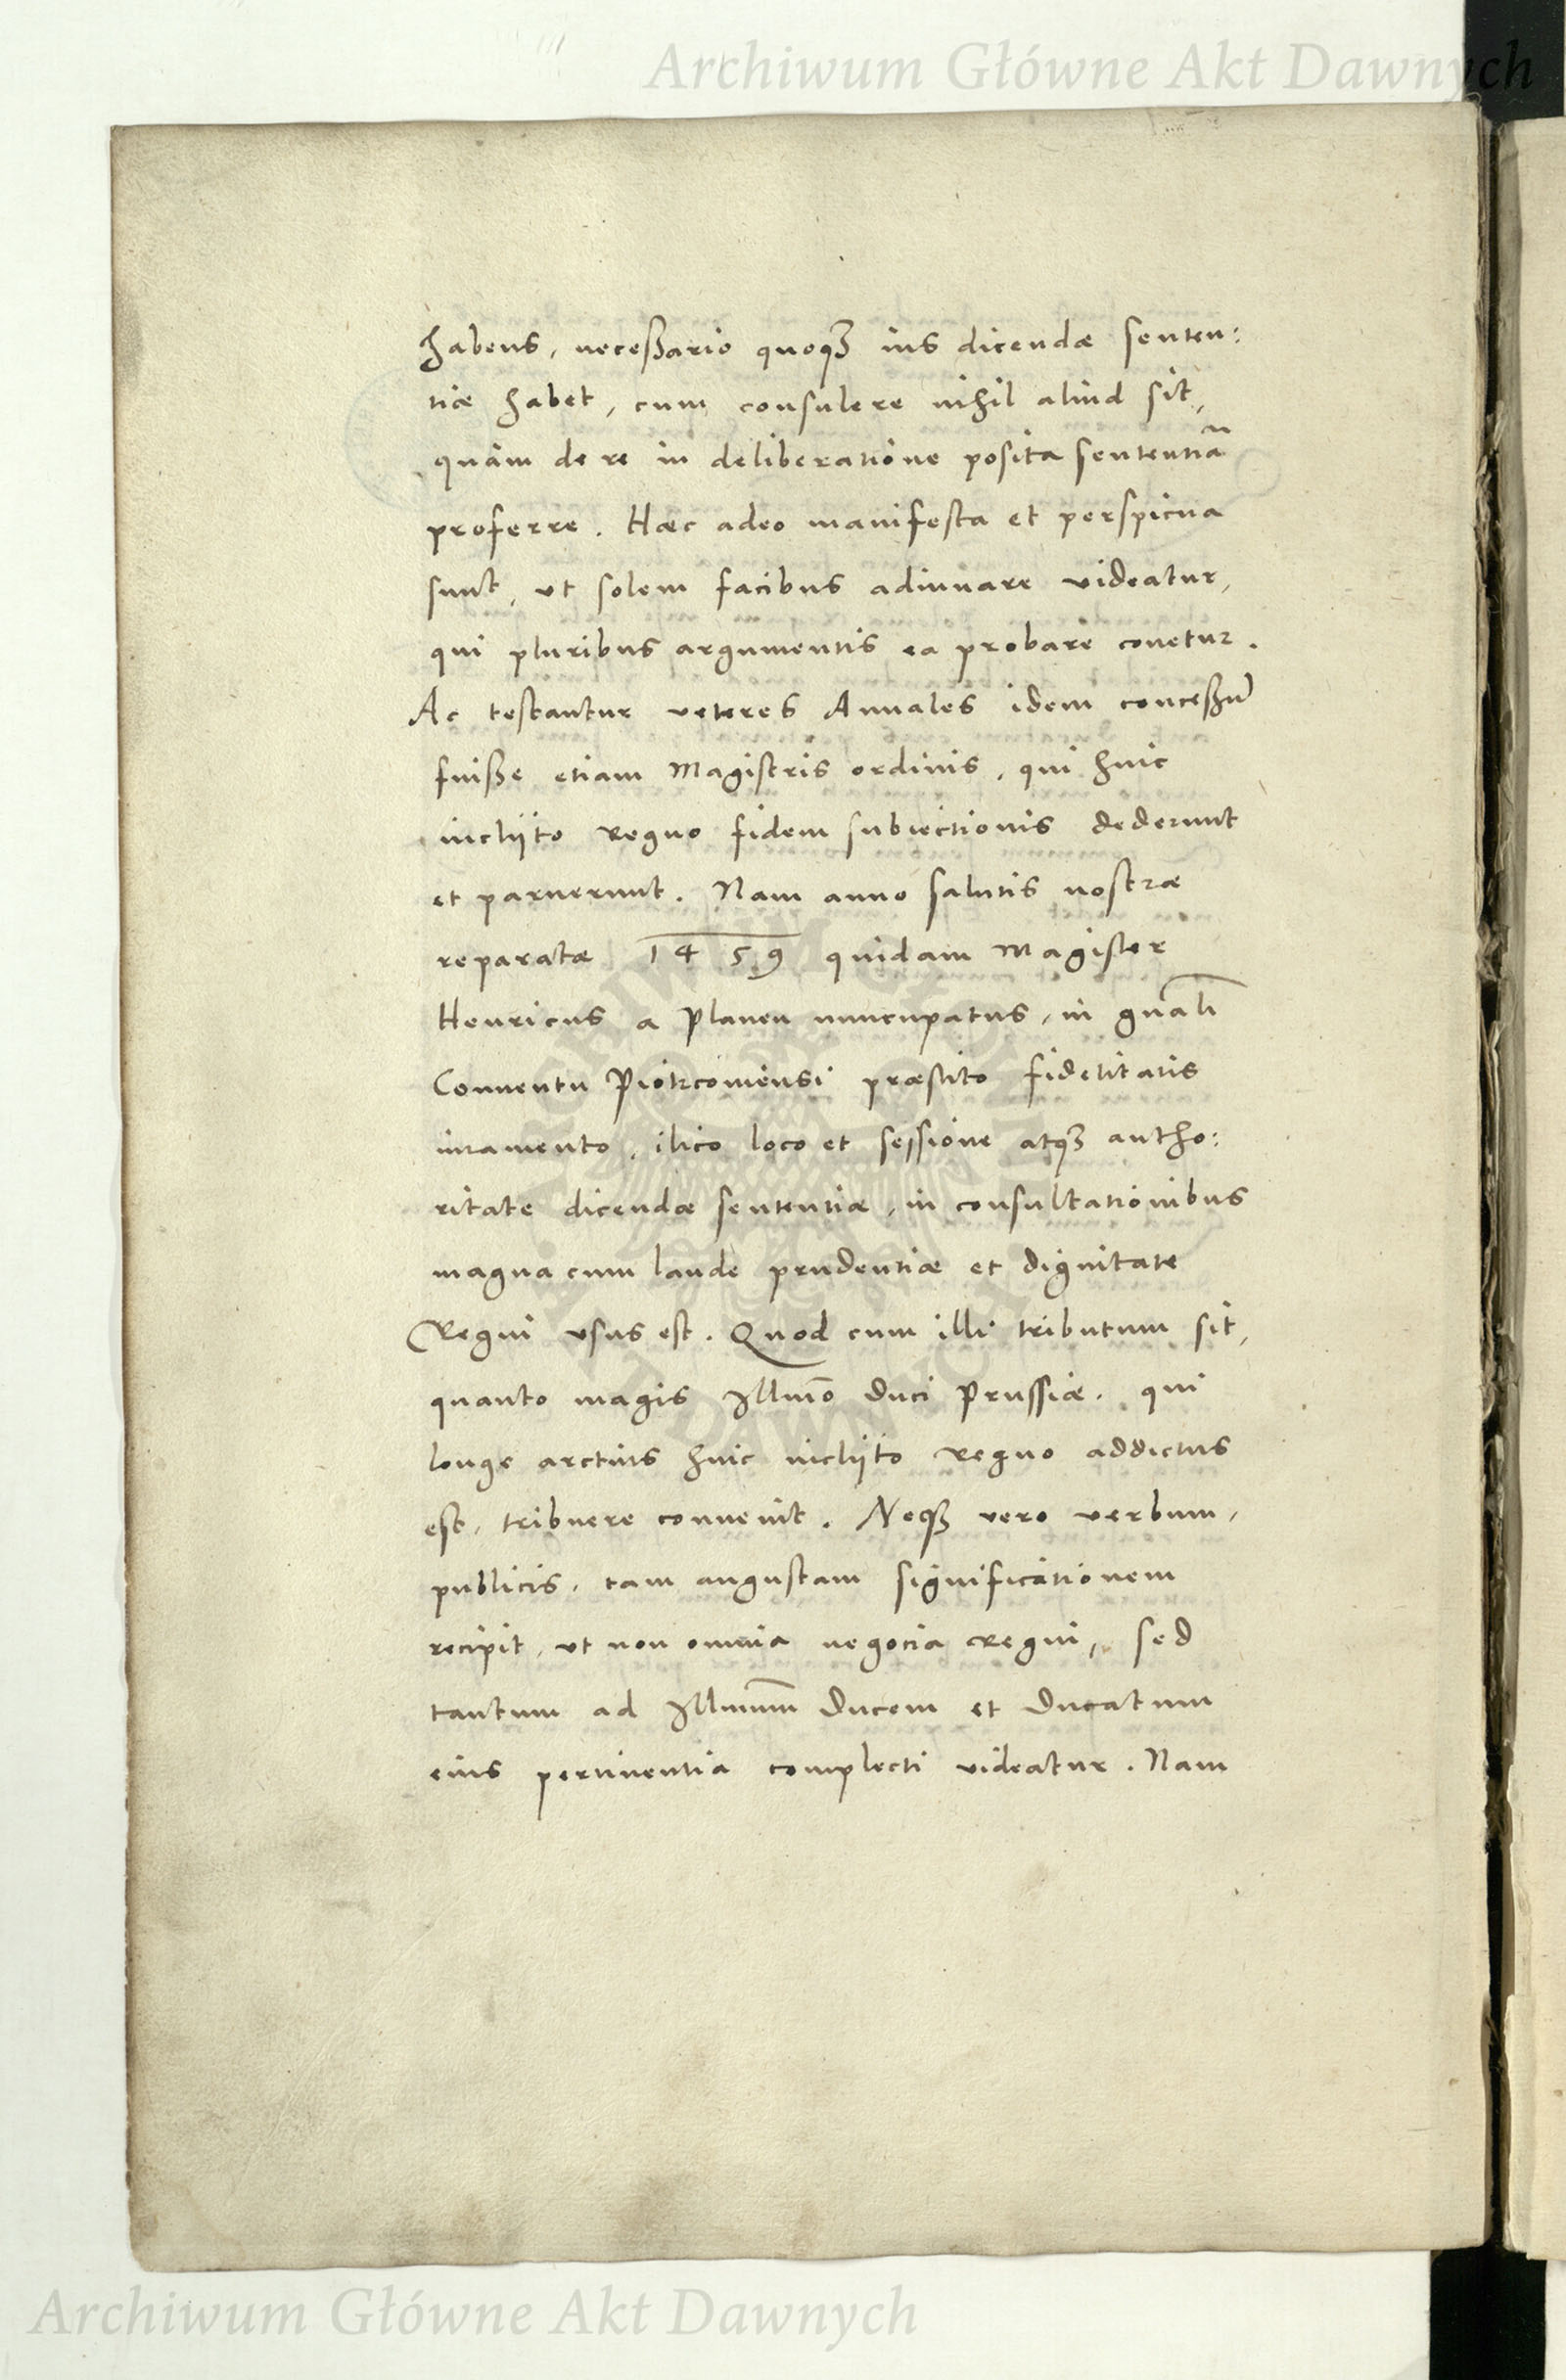 Archiwum Główne Akt Dawnych
habens, neceßario quoqꝫ ius dicendæ senten:
tiæ habet, cum consulere nihil aliud sit,
quàm de re in deliberatione posita sententiã
proferre. Hæc adeo manifesta et perspicua
sunt, ut solem facibus adiuuare videatur,
qui pluribus argumentis ea probare conetur.
Ac testantur veteres Annales idem conceßũ
fuiße etiam Magistris ordinis, qui huic
inclÿto Regno fidem subiectionis dederunt
et paruerunt. Nam anno salutis nostræ
reparatæ 1459 quidam Magister
Henricus a Plauen nuncupatus, in gnãli
Conuentu Piotrcouiensi præstito fidelitatis
iuramento, ilico loco et sessione atqꝫ autho:
ritate dicendæ sententiæ, in consultationibus
magna cum laude prudentiæ et dignitate
Regni vsus est. Quod cum illi tributum sit,
quanto magis Illmo͂ Duci Prussiæ. qui
longe arctius huic inclÿto Regno addictus
est, tribuere conuenit. Neqꝫ vero verbum,
publicis, tam angustam significationem
recipit, vt non omnia negocia Regni, sed
tantum ad Illmum͂ Ducem et Ducatum
eius pertinentia complecti videatur. Nam
Archiwum Główne Akt Dawnych